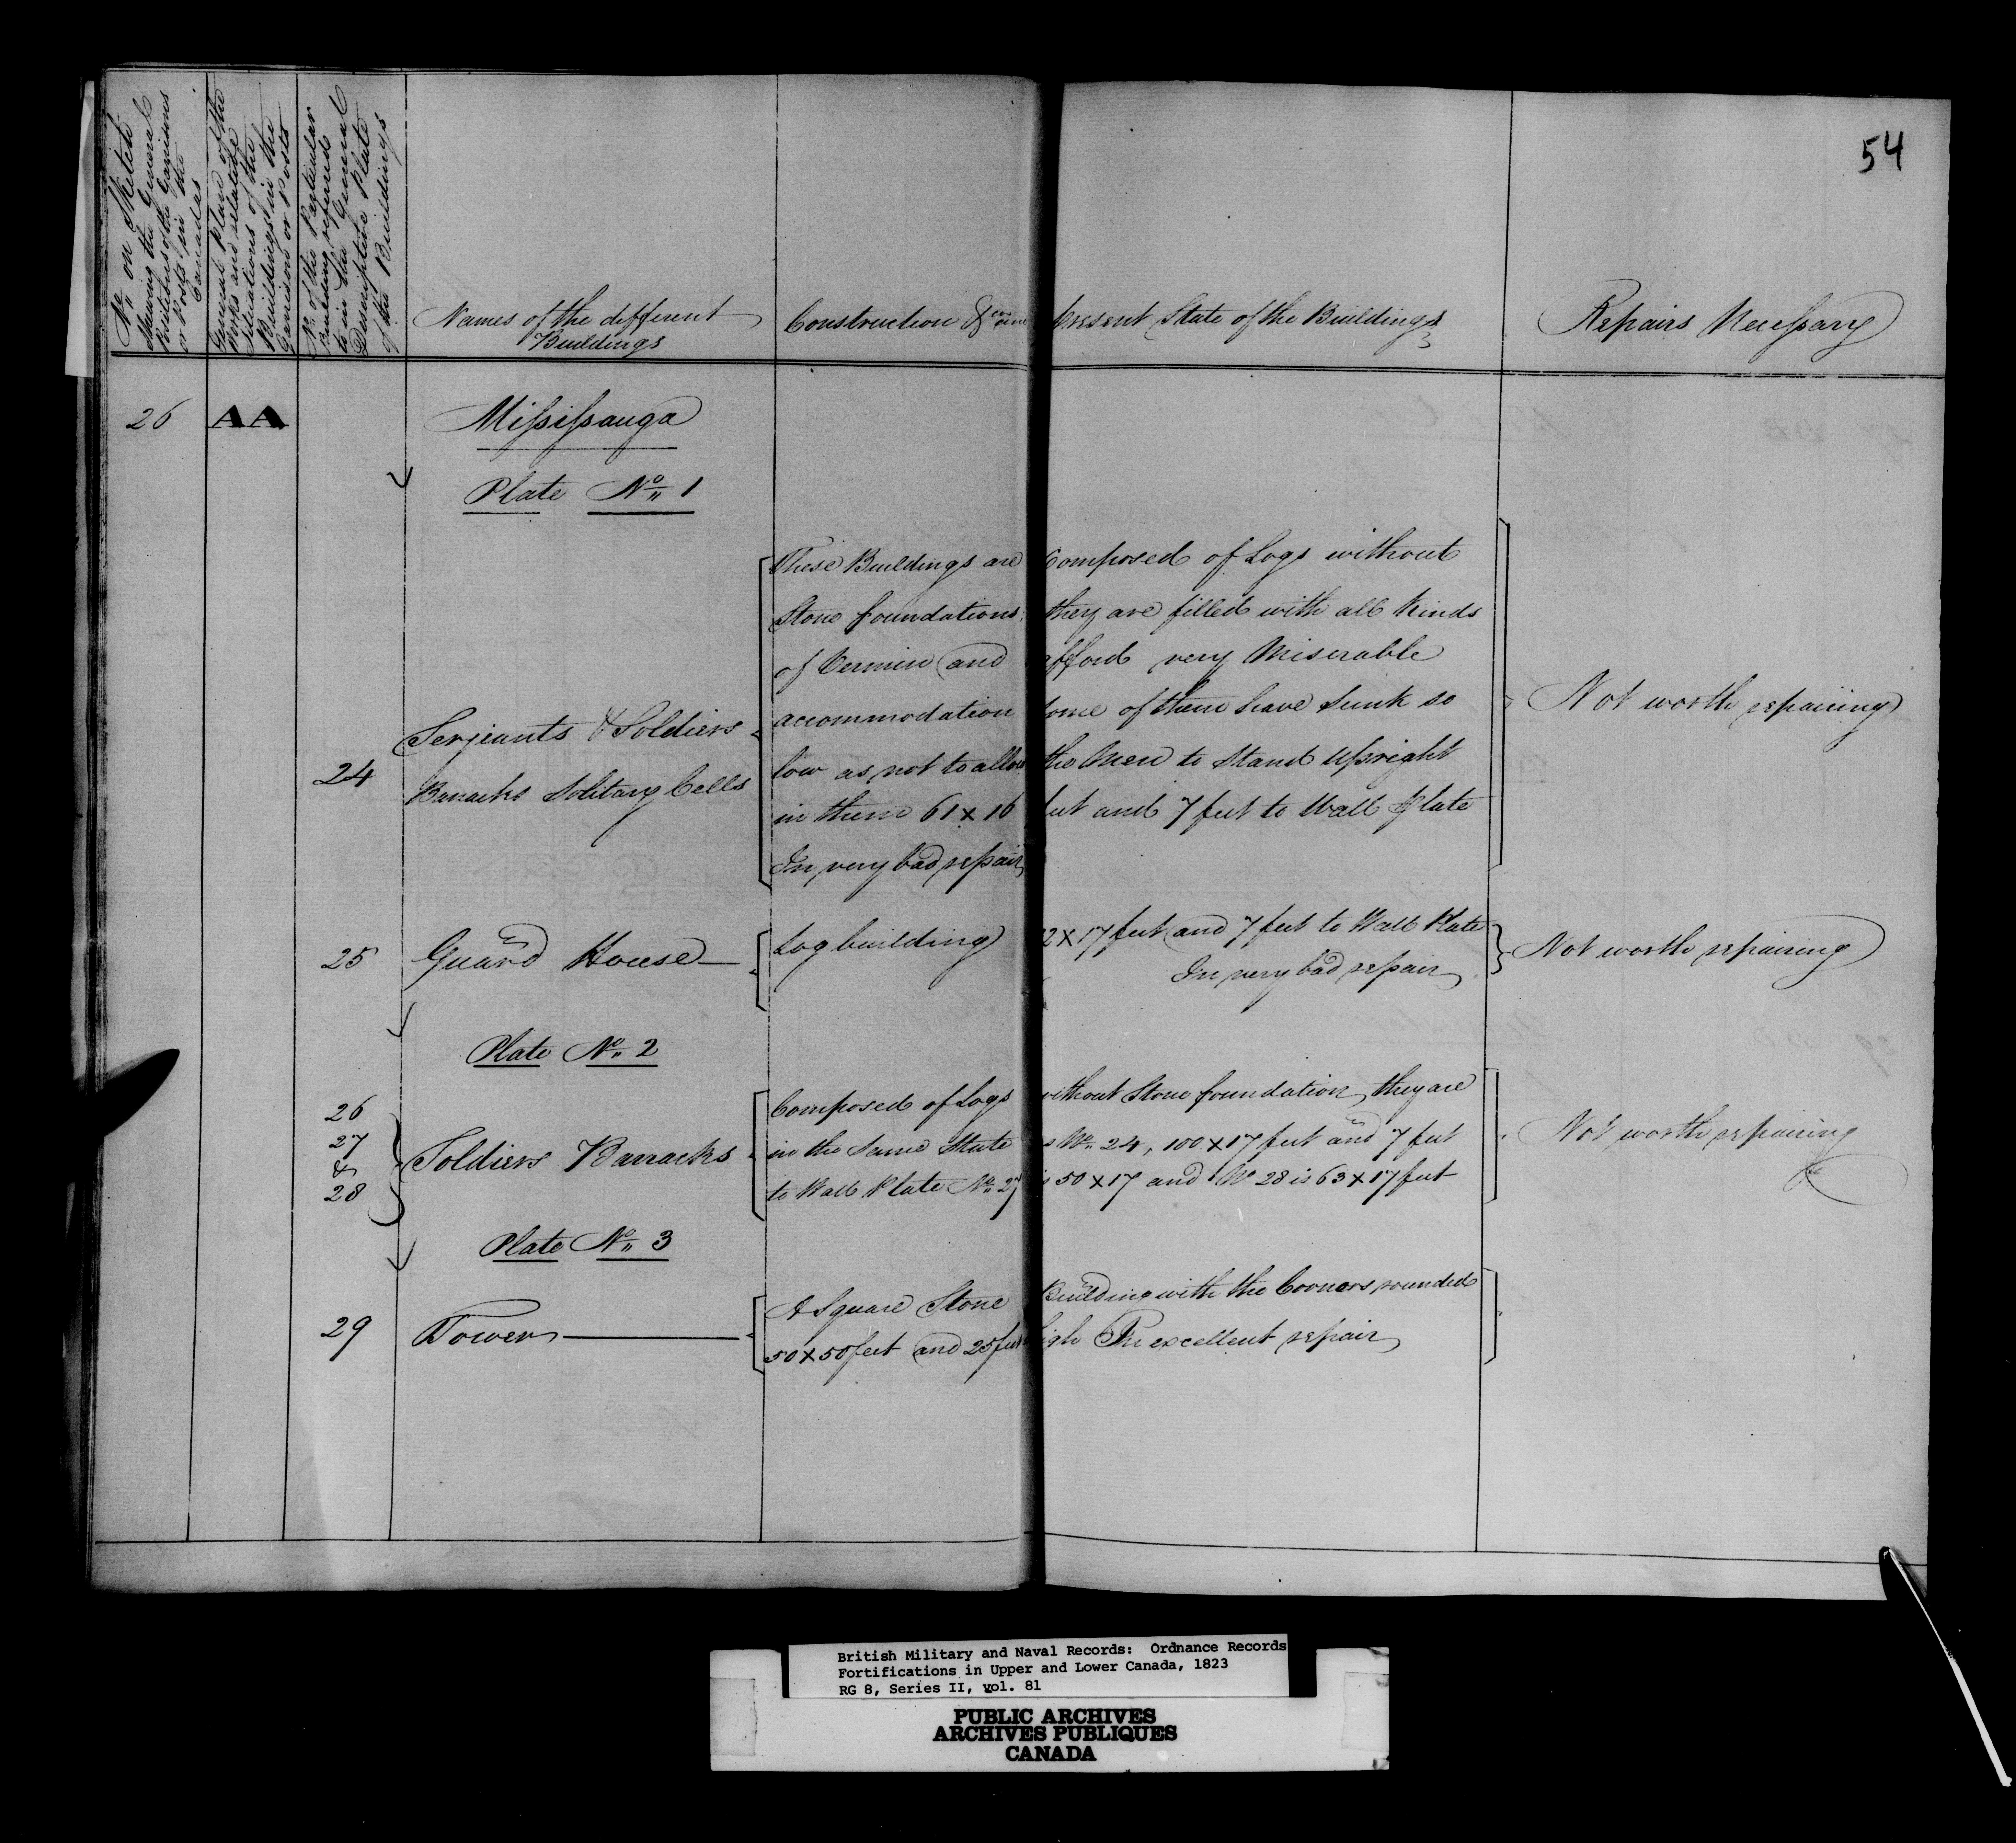 54
No. on Sketch
shewing the General
Positions of the Garrisons
or Posts in the
Canadas
General Plan of the
Works and relative
Situations of the
Buildings in the
Garrisons or Posts
No. of the Particular
Building referred
to in the General
Descriptive Plate
of the Buildings
Names of the different
Buildings
Construction &
present State of the Buildings
Repairs Necessary
26 AA Missisauga
Plate No. 1
These Buildings are composed of Logs without
Stone foundations they are filled with all Kinds
of Vermin and afford very Miserable
accommodation some of them have Sunk so
low as not to allow the Men to Stand Upright
in them 61 x 16 feet and 7 feet to Wall Plate
In very bad repair
24 Serjeants & Soldiers
Barracks Solitary Cells
Not worth repairing
25 Guard House
Log building 2 x 17 feet and 7 feet to Wall Plate
In very bad repair
Not worth repairing
Plate No. 2
26
27
&
28
Soldiers Barracks
Composed of Logs without Stone foundation, they are
in the Same State as No. 24, 100 x 17 feet and 7 feet
to Wall Plate No. 27 is 50 x 17 and No 28 is 63 x 17 feet
Not worth repairing
Plate No. 3
29 Tower
A Square Stone Building with the Corners rounded
50 x 50 feet and 25 feet high In excellent repair
British Military and Naval Records: Ordnance Records
Fortifications in Upper and Lower Canada, 1823
RG 8, Series II, vol. 81
PUBLIC ARCHIVES
ARCHIVES PUBLIQUES
CANADA